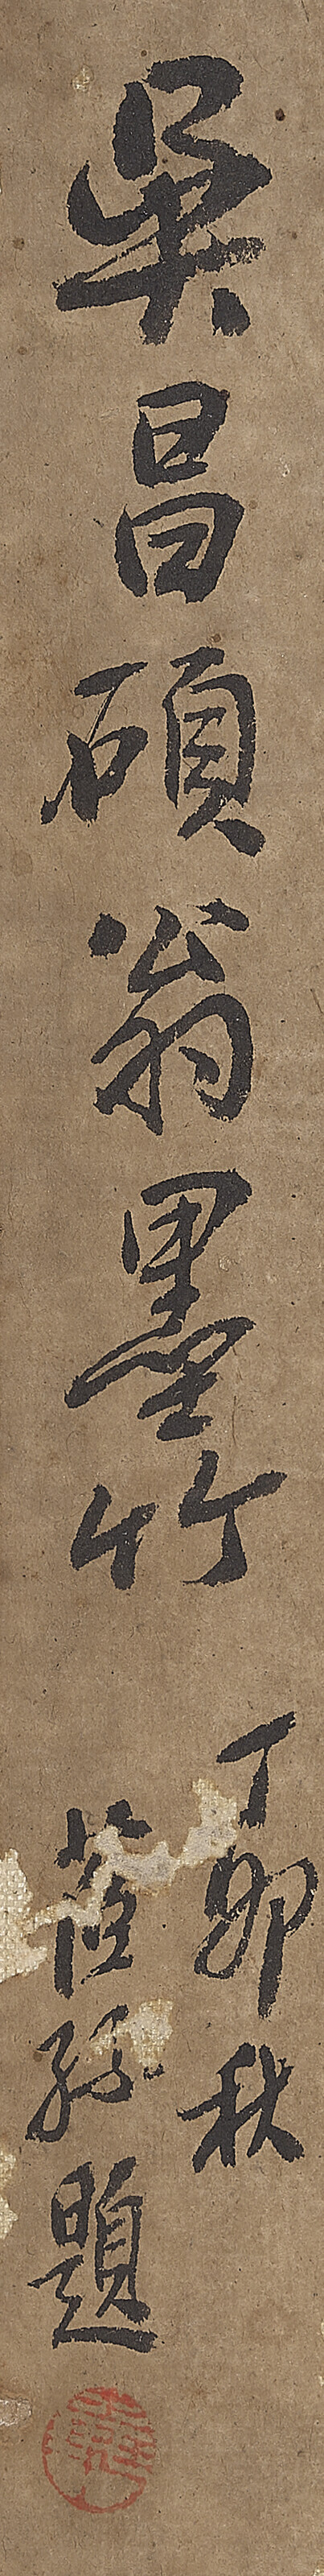 吳昌碩翁墨竹
丁卯秋
孫題